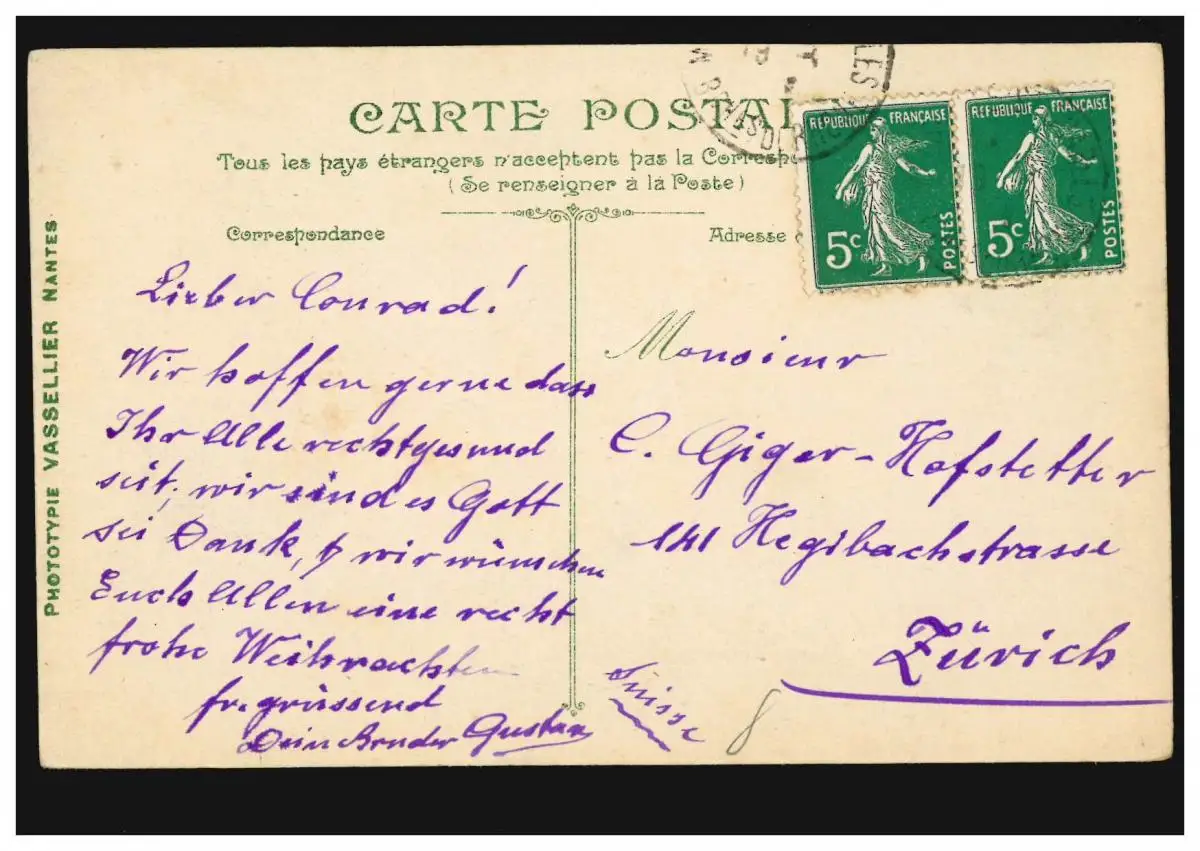 CARTE POSTAL
Tous les pays étrangers n'acceptent pas la Corresp
(Se renseigner à la Poste)
Correspondance
Adresse
PHOTOTYPIE VASSELLIER NANTES
RÉPUBLIQUE FRANÇAISE
5c
POSTES
RÉPUBLIQUE FRANÇAISE
5c
POSTES
Lieber Conrad!
Wir hoffen gerne dass
Ihr Alle recht gesund
seit, wir sind es Gott
sei Dank, & wir wünschen
Euch Allen eine recht
frohe Weihnachten
fr. grüssend
Dein Bruder Gustav
Monsieur
C. Giger-Hofstetter
141 Hegibachstrasse
Zürich
Suisse
8